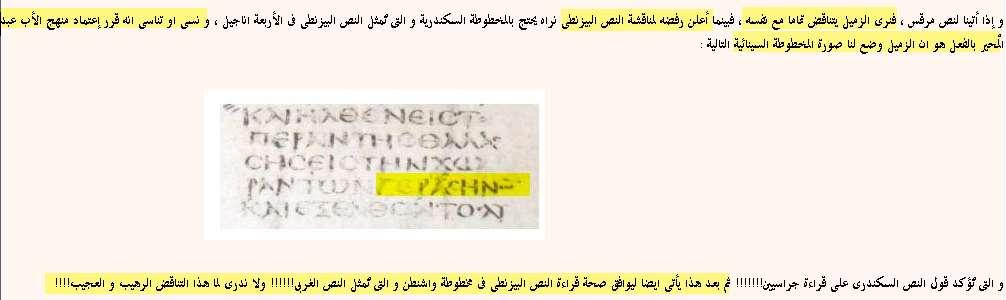 و إذا أتينا لنص مرقس ، فنرى الزميل يتناقض تماما مع نفسه ، فبينما أعلن رفضه لمناقشة النص البيزنطى نراه يحتج بالمخطوطة السكندرية و التى تُمثل النص البيزنطى فى الأربعة اناجيل ، و نسى او تناسى انه قرر إعتماد منهج الأب عبد
المُحير بالفعل هو ان الزميل وضع لنا صورة المخطوطة السينائية التالية :
ΚΑΙΗΛΘΕΝΕΙΣΤ
ΠΕΡΑΝΤΗΣΘΑΛΑΣ
ΣΗΣΕΙΣΤΗΝΧΩ
ΡΑΝΤΩΝΓΕΡΑΣΗΝ
ΚΑΙΕΞΕΛΘΟΝΤΟ
و التى تُؤكد قول النص السكندرى على قراءة جراسيين!!!!!!! ثم بعد هذا يأتى ايضا ليوافق صحة قراءة النص البيزنطى فى مخطوطة واشنطن و التى تُمثل النص الغربى!!!!!! ولا ندرى لما هذا التناقض الرهيب و العجيب!!!!